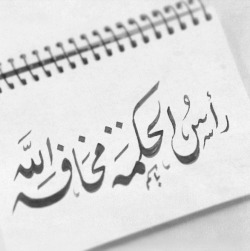 رأسُ الحكمةِ مخافةُ اللَّه